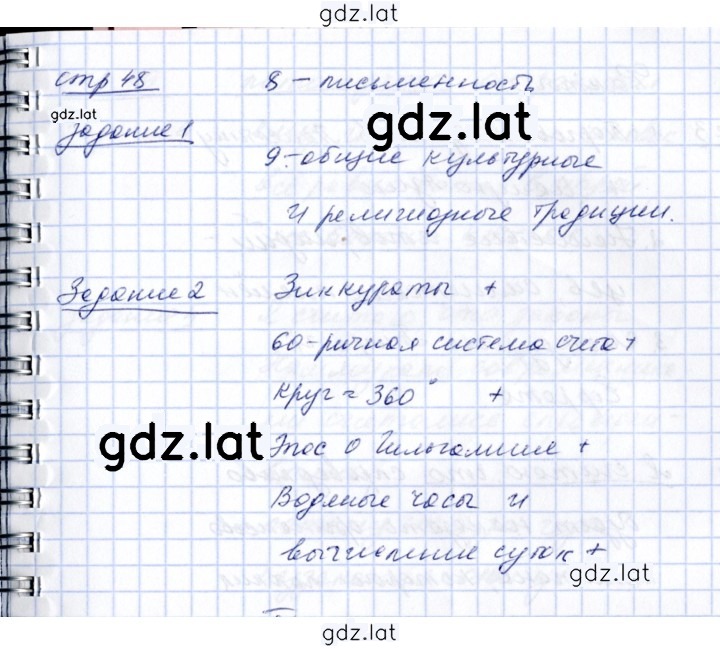 gdz.lat
стр 48
8 – письменность
gdz.lat
gdz.lat
задание 1
9. общие культурные
и религиозные традиции.
Задание 2
Зиккураты +
60-ричная система счета +
круг = 360° +
gdz.lat
Эпос о Гильгамише +
Водяные часы и
вычисление суток +
gdz.lat
gdz.lat